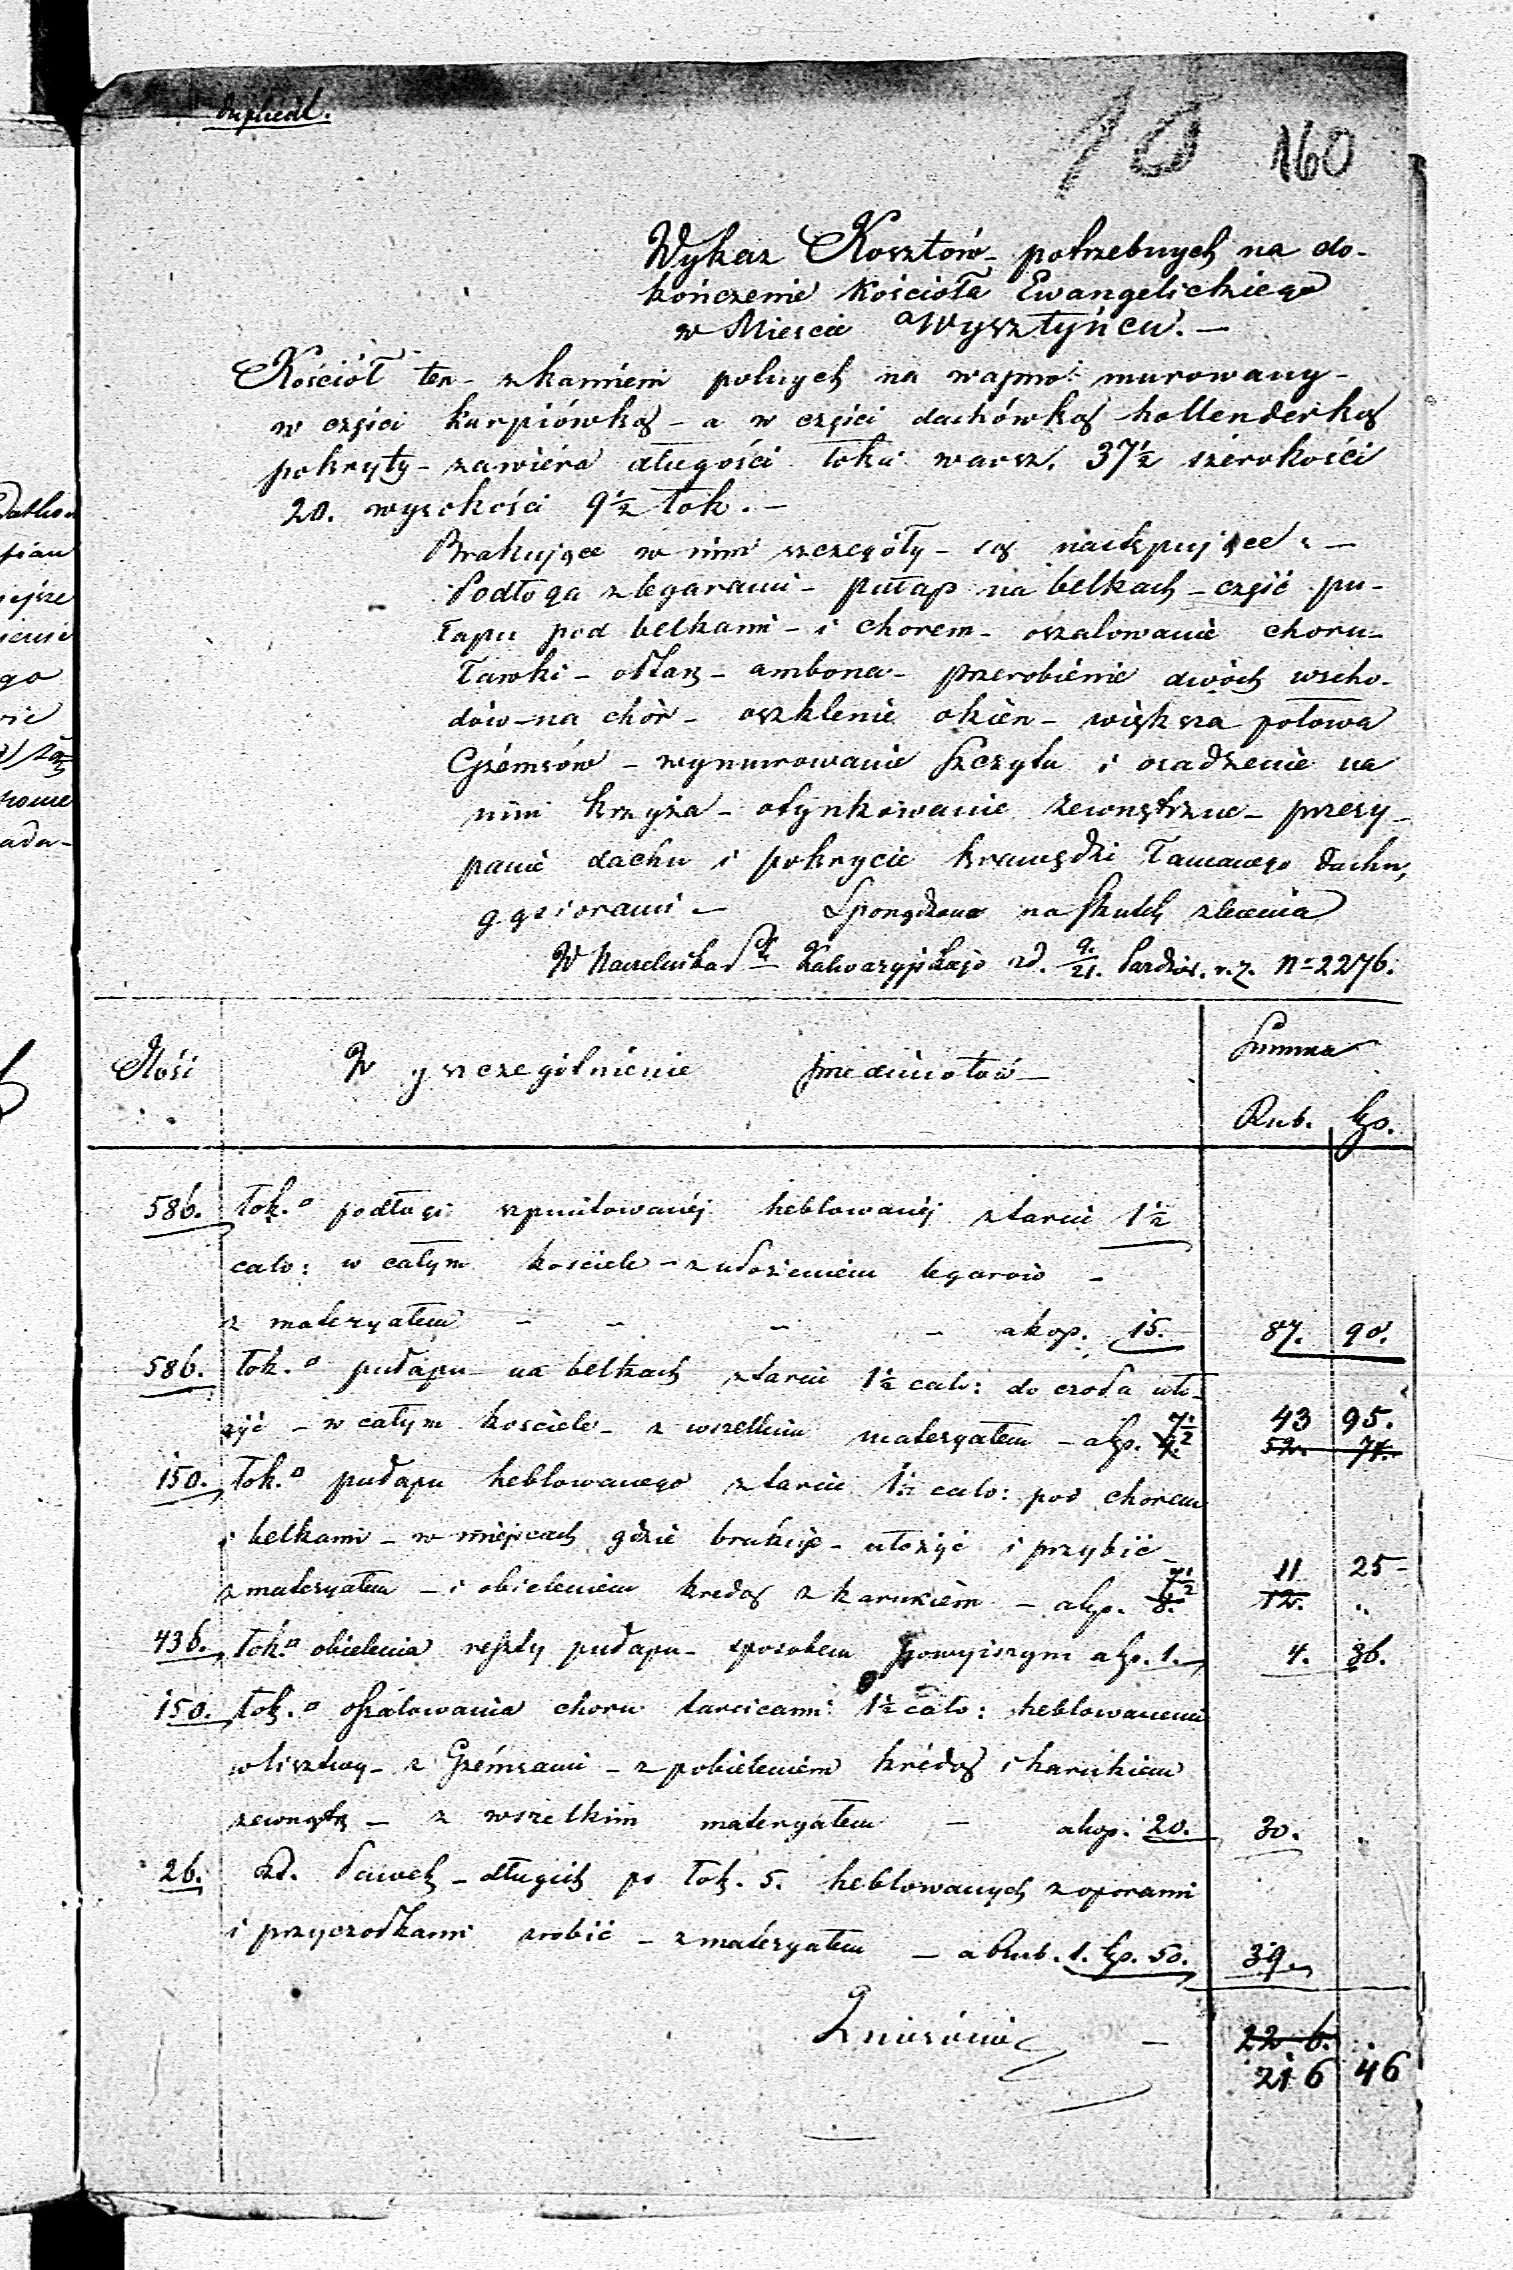 duplicat.
10 160
Wykaz Kosztów potrzebnych na do-
kończenie Kościoła Ewangelickiego
w Miescie Wysztyńcu. —
Kościół ten - z kamieni polnych na wapno murowany -
w części karpiówką - a w części dachówką hollenderką
pokryty - zawiéra długości łokci warsz. 37½ szérokości
20. wysokości 9½ łok. -
Brakujące w nim szczegóły - są następujące: —
Podłoga z legarami - pułap na belkach - część pu-
łapu pod belkami - i chorem - oszalowanie choru -
Ławki - ołtarz - ambona - przerobienie dwóch wscho-
dów - na chór - oszklenie okien - większa połowa
Gzémsów - wymurowanie Szczytu i osadzenie na
nim krzyża - otynkowanie zewnętrzne - przesy-
panie dachu i pokrycie krawędzi łamanego dachu,
gąsiorami - Sporządzone na skutek zlecenia
W Naczelnika Ptu Kalwaryjskiego zd. 9./21. Paźdźier. r. z. N= 2276.
Ilość Wyszczególnienie przedmiotów - Summa
Rub. kp.
586. łok.□ podłogi szpuntowanéj heblowanéj z tarcic 1½
calo: w całym kościele - z ułożeniem legarów -
z materyałem - - - - a kop. 15. 87. 90.
586. łok.□ pułapu na belkach z tarcic 1½ calo: do czoła uło-
żyć - w całym kosciele - z wszelkim materyałem - a kp. 9. 7½ 43 95.
52. 74.
150. łok.□ pułapu heblowanego z tarcic 1½ calo: pod chorem
i belkami - w miejscach gdzie brakuje - ułożyć i przybić -
z materyałem - i obieleniem kredą z karukiem - a kp. 8. 7½ 11 25 -
12. „
436. łok.□ obielenia reszty pułapu - sposobem powyższym a kp. 1. - 4. 36.
150. łok.□ oszalowania choru tarcicami 1½ calo: heblowanemi
w lisztwy - z Gzémsami - z pobieleniem krédą i karukiem
zewnątrz - z wszelkim materyałem - a kop. 20. 30. „
26. szt. Ławek - długich po łok. 5. heblowanych z oporami
i przyczołkami zrobić - z materyałem - a Rub. 1. kp. 50. 39.
Zniesienie - 226. ..
216 46